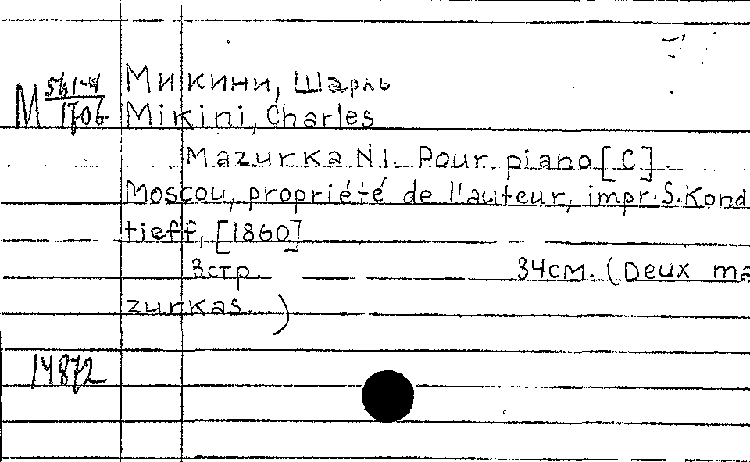 Микини, Шарль
M 561-4/1706 Mikini, Charles
Mazurka N1. Pour piano [C].
Moscou, propriété de l'auteur, impr. S. Kond
tieff, [1860]
3 стр. 34 см. (Deux ma
zurkas.)
14872